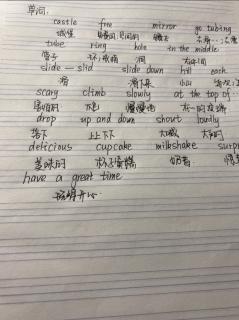 单词:
castle free mirror go tubing
城堡 镜子
tube ring hole in the middle
管子 环;戒指 洞 在中间
slide — slid slide down hill each
滑 滑下来 小山
scary climb slowly at the top of
慢慢地
drop up and down shout loudly
落下 上上下下 大喊 大声的
delicious cupcake milkshake surp
美味的 杯子蛋糕 奶昔
have a great time
玩得开心